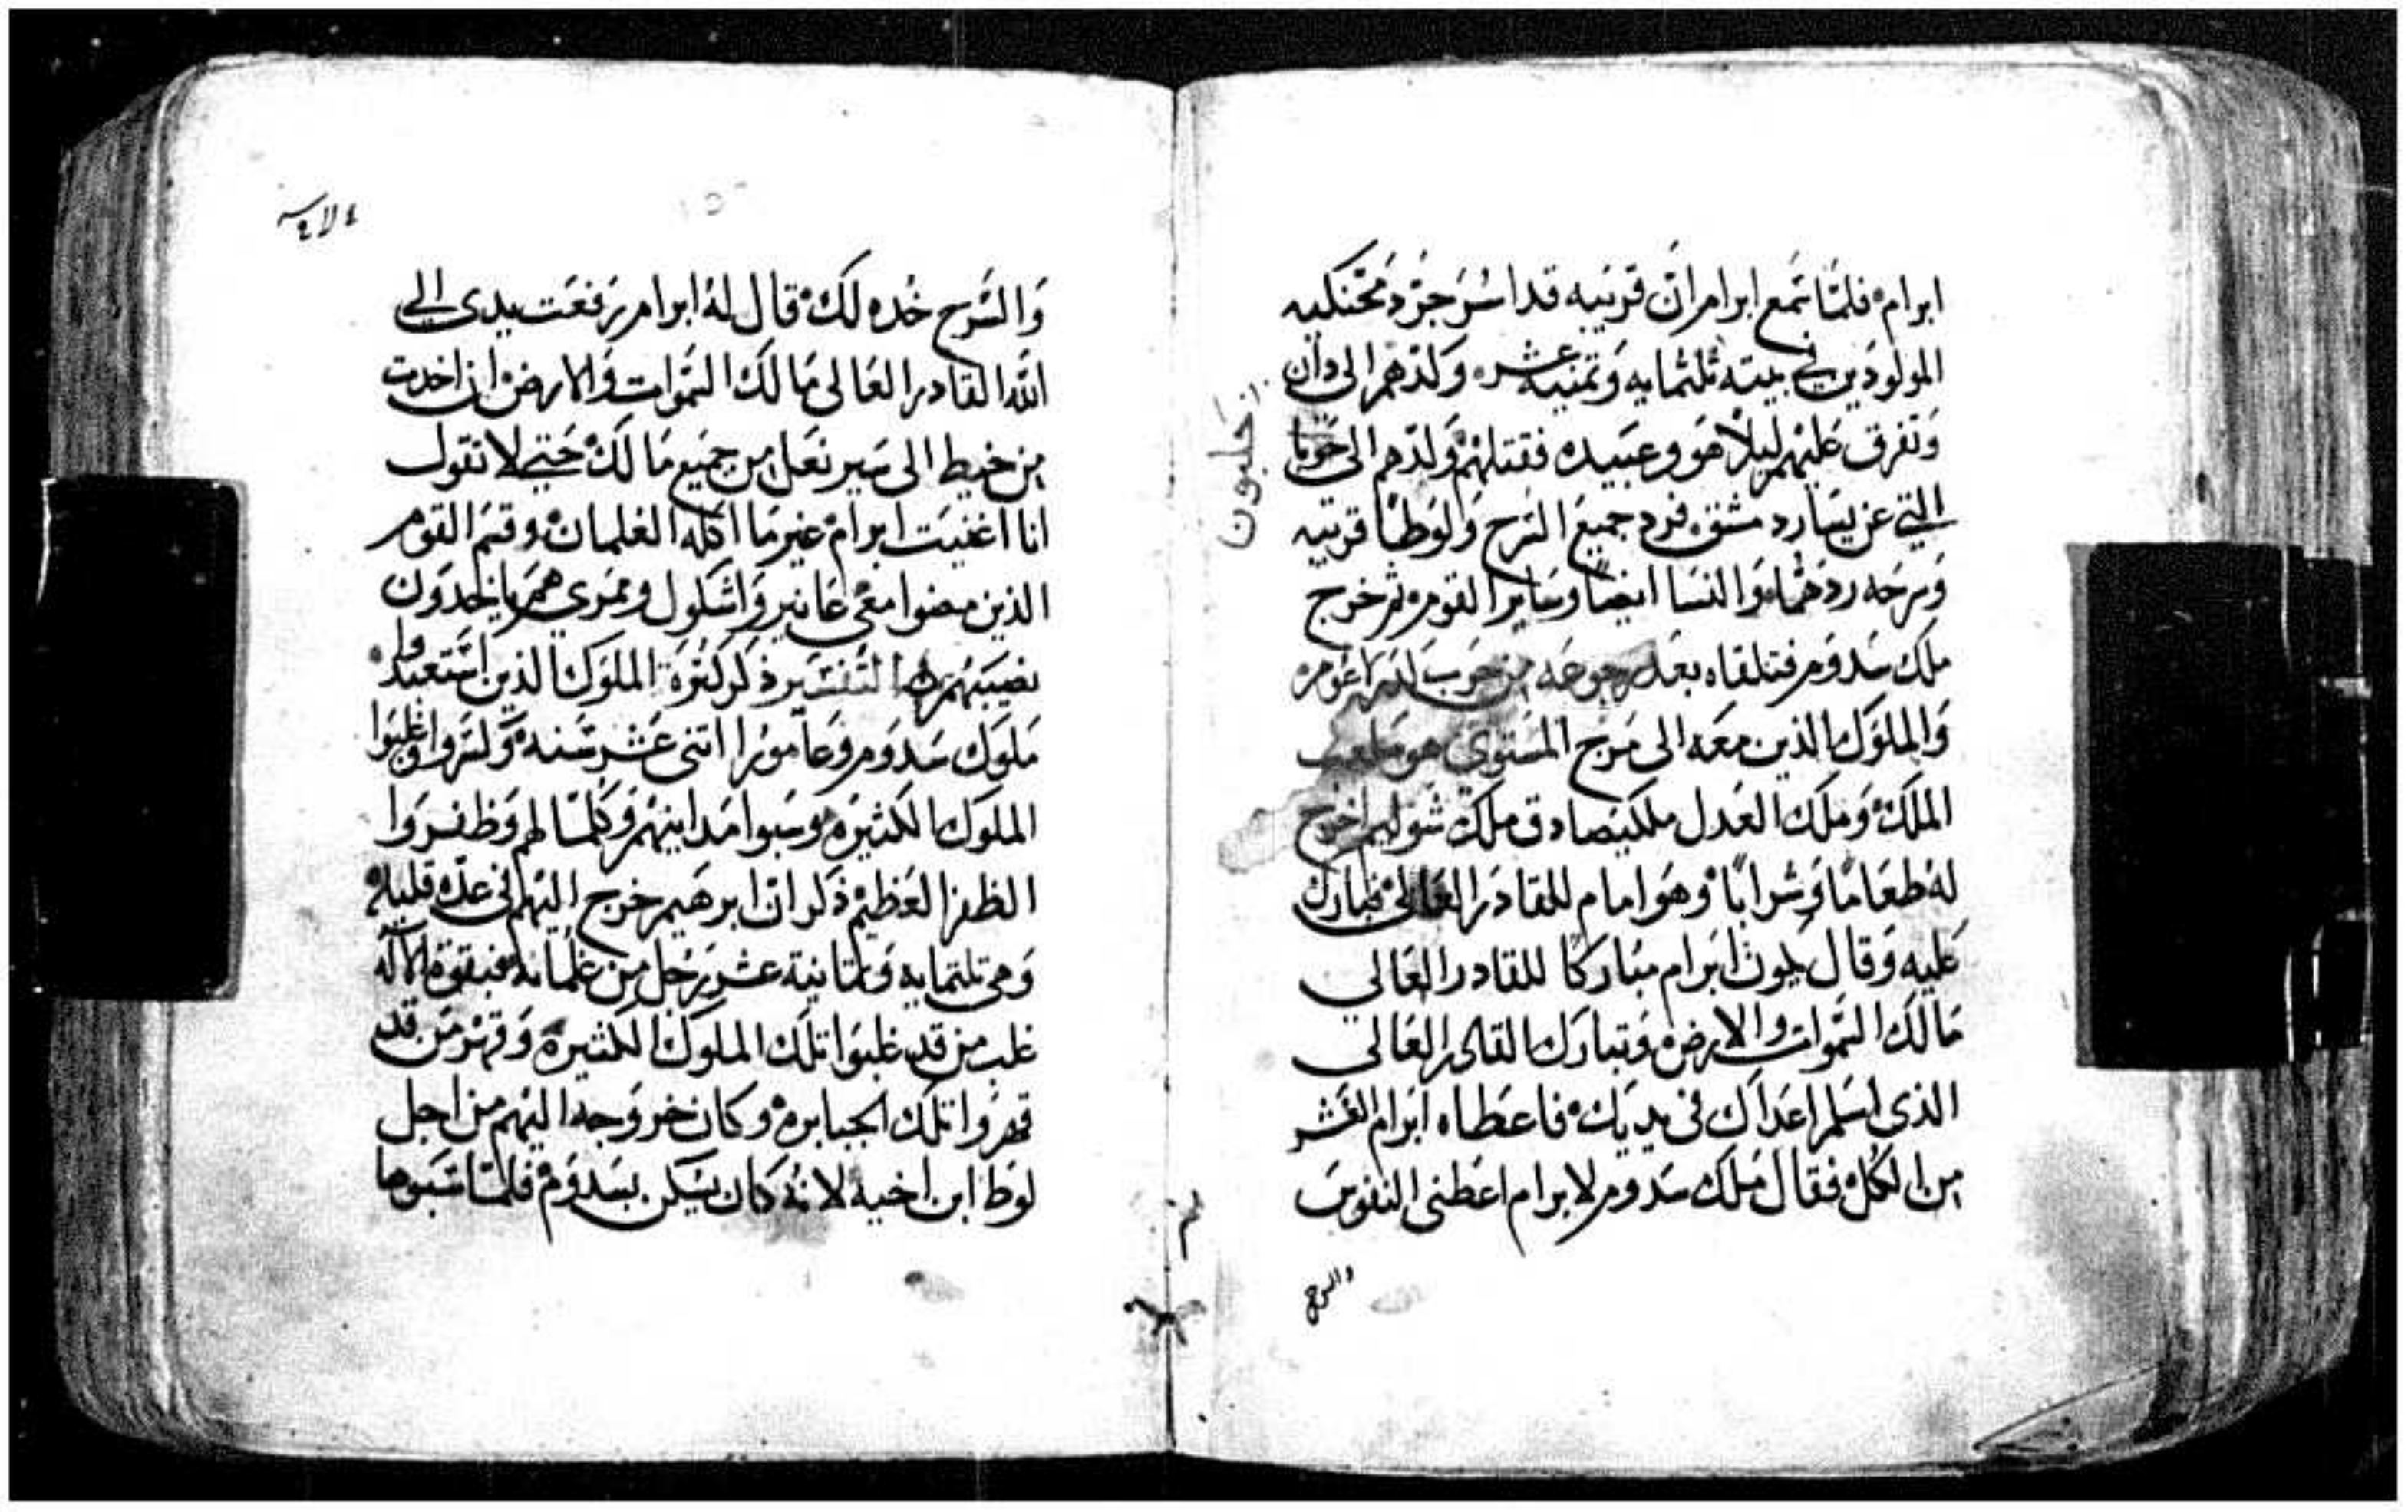 ابرام فلما سمع ابرام ان قريبه قد اسر جرد محنكيه
المولودين في بيته ثلثمايه وثمنيه عشر وكدهم الى دان
وتفرق عليهم ليلا هو وعبيده فقتلهم وكدهم الى حوبا
التي عن يسار دمشق فرد جميع السرح ولوطا قريبه
وسرحه ردهما والنسا ايضا وساير القوم ثم خرج
ملك سدوم فتلقاه بعد رجوعه من حرب
والملوك الذين معه الى مرج المستوي هو
الملك وملك العدل ملكيصادق ملك شوليم اخرج
له طعاما وشرابا وهو امام للقادر العالي فبارك
عليه وقال يكون ابرام مباركا للقادر العالي
مالك السموات والارض وتبارك القادر العالي
الذي اسلم اعداك في يديك فاعطاه ابرام العشر
من الكل فقال ملك سدوم لابرام اعطني النفوس
والسرح
والسرح خده لك قال له ابرام رفعت يدي الي
الله القادر العالي مالك السموات والارض ان اخدت
من خيط الى سير نعل من جميع مالك حتي لا تقول
انا اغنيت ابرام غير ما اكله الغلمان وقسم القوم
الذين مضوا معي عانير واشكول وممري هم ياخدون
نصيبهم التفسير ذكر كثرة الملوك الذين استعبدوا
ملوك سدوم وعامورا اثني عشر سنه وكسروا وغلبوا
الملوك الكثيره وسبوا مداينهم وكلما لهم وظفروا
الظفر العظيم ذكر ان ابرهيم خرج اليهم في عده قليله
وهي ثلثمايه وثمانية عشر رجل من غلمانه فبقوة الاله
غلب من قد غلبوا تلك الملوك الكثيره وقهر من قد
قهروا تلك الجبابره وكان خروجه اليهم من اجل
لوط ابن اخيه لانه كان يسكن بسدوم فلما سبوها